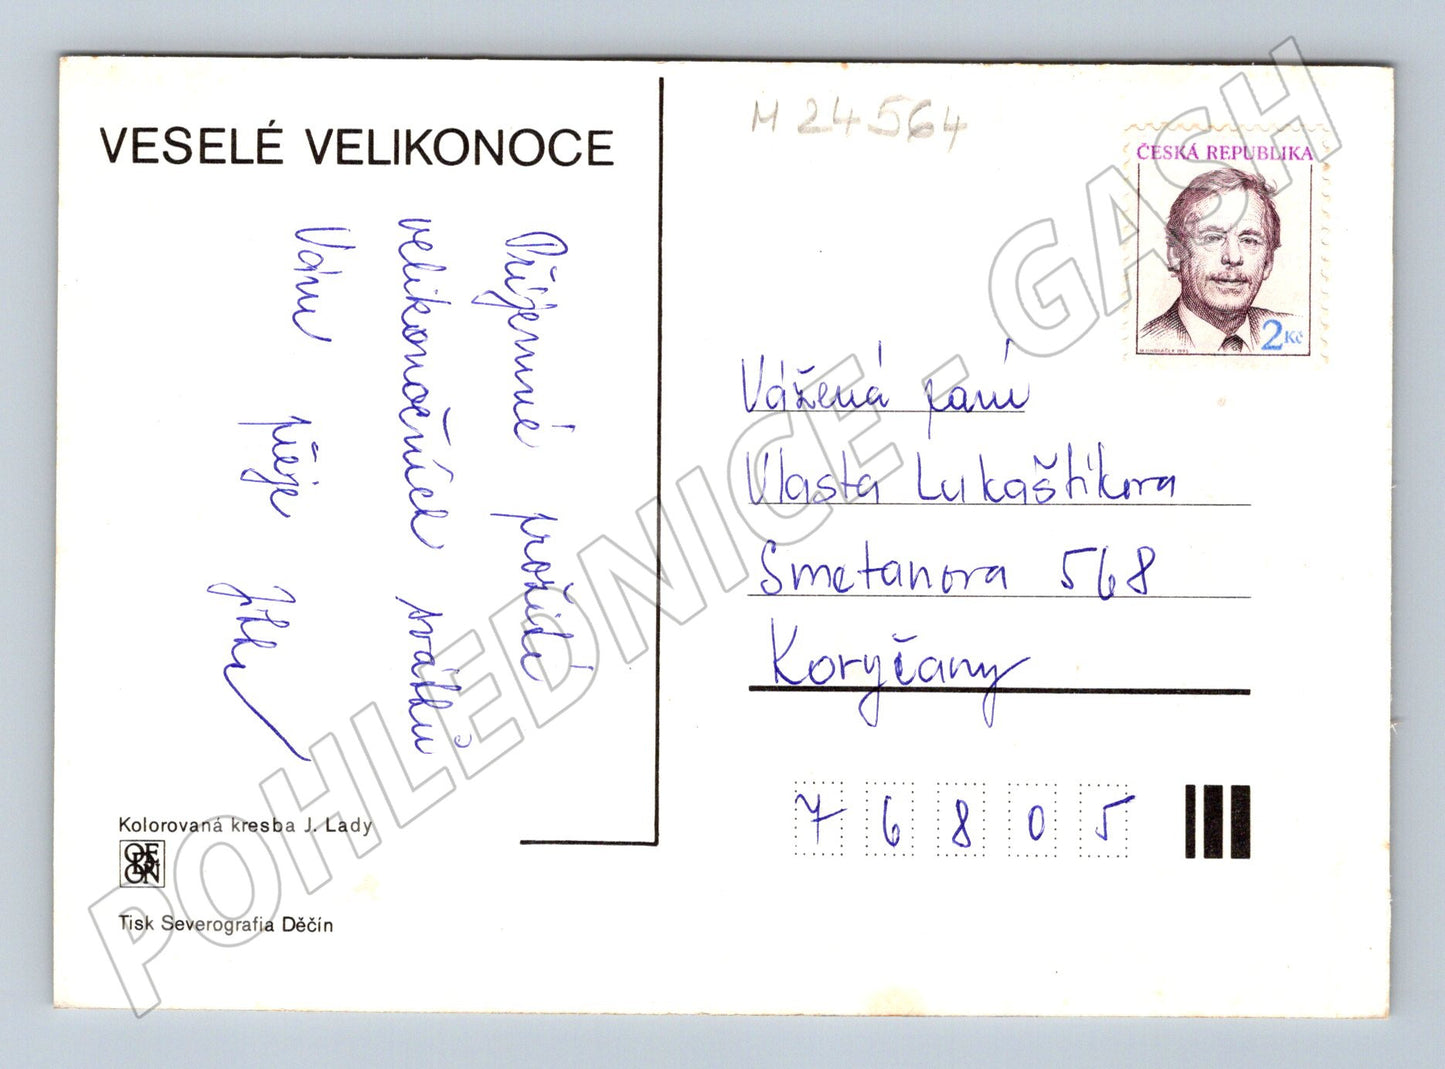 VESELÉ VELIKONOCE
Příjemné prožití
velikonočních svátků
Vám přeje
Kolorovaná kresba J. Lady
ODEON
Tisk Severografia Děčín
M 24564
ČESKÁ REPUBLIKA
2 Kč
Vážená paní
Vlasta Lukaštíkova
Smetanova 568
Koryčany
76805
POHLEDNICE - GASH